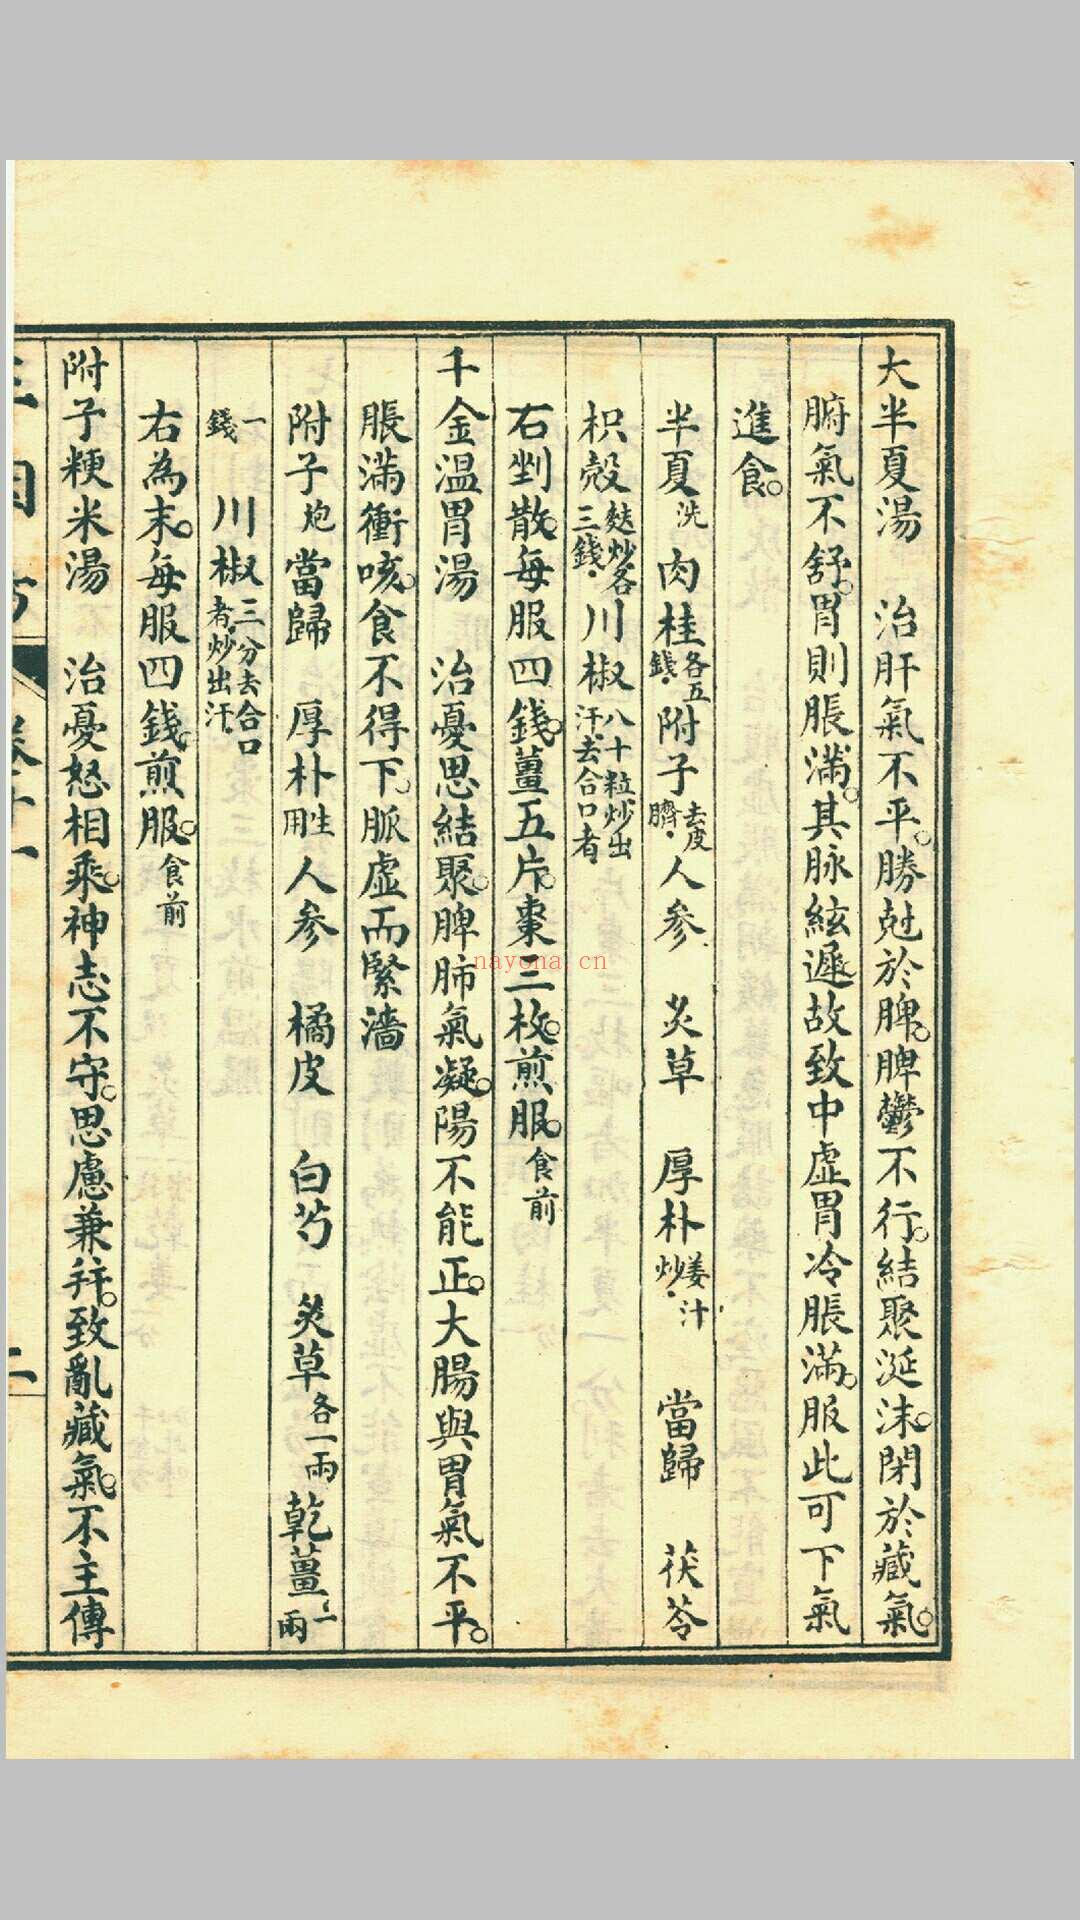 大半夏湯　治肝氣不平。勝尅於脾。脾鬱不行。結聚涎沫。閉於藏氣。
腑氣不舒。胃則脹滿。其脉絃遲故致中虛胃冷脹滿。服此可下氣
進食。
半夏洗　肉桂各五錢・附子去皮臍・人參　炙草　厚朴姜汁炒・　當歸　茯苓
枳殻麩炒各三錢・川椒八十粒炒出汗・去合口者
右剉散。每服四錢。薑五片。棗三枚。煎服。食前
千金溫胃湯　治憂思結聚。脾肺氣凝。陽不能正。大腸與胃氣不平。
脹滿衝咳。食不得下。脈虛而緊濇
附子炮當歸　厚朴生用人參　橘皮　白芍　炙草各一兩乾薑二兩
一錢　川椒三分去合口者。炒出汗
右為末。每服四錢。煎服。食前
附子粳米湯　治憂怒相乘。神志不守。思慮兼并。致亂藏氣。不主傳
卷十一
二
nayona.cn